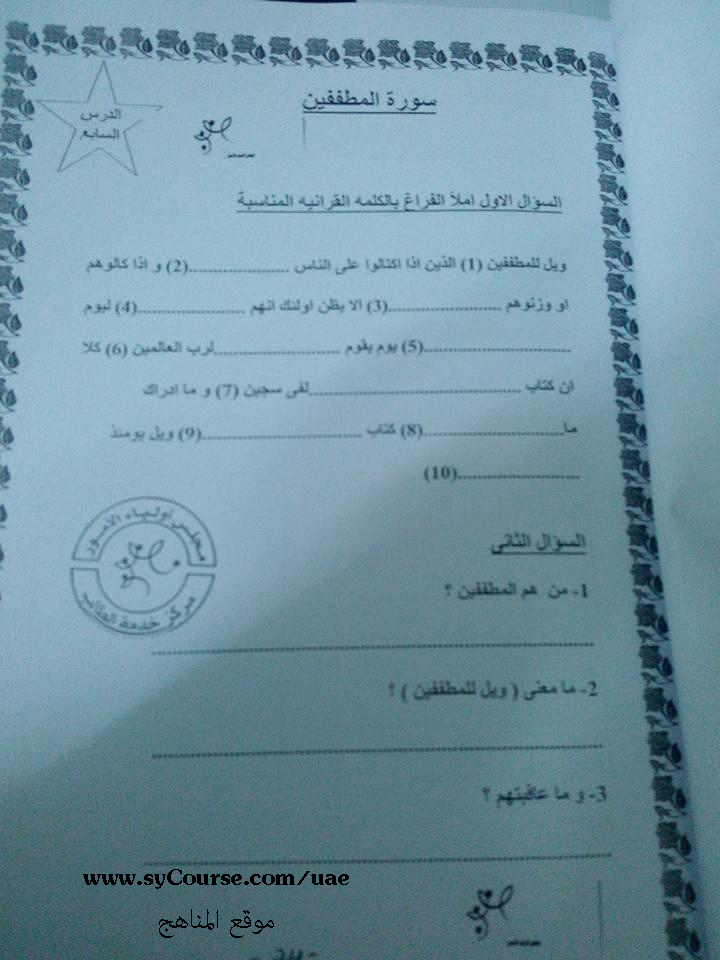 سورة المطففين
الدرس
السابع
السؤال الاول املأ الفراغ بالكلمه القرانيه المناسبة
ويل للمطففين (1) الذين اذا اكتالوا على الناس ....................(2) و اذا كالوهم
او وزنوهم ......................(3) الا يظن اولئك انهم .....................(4) ليوم
.............................(5) يوم يقوم .........................لرب العالمين (6) كلا
ان كتاب ..........................................لفى سجين (7) و ما ادراك
ما............................(8) كتاب ................................(9) ويل يومئذ
........................(10)
مجلس اولياء الأمور
مركز خدمة الطالب
السؤال الثانى
1- من هم المطففين ؟
................................................................
2- ما معنى ( ويل للمطففين ) ؟
................................................................
3- و ما عاقبتهم ؟
................................................................
www.syCourse.com/uae
موقع المناهج